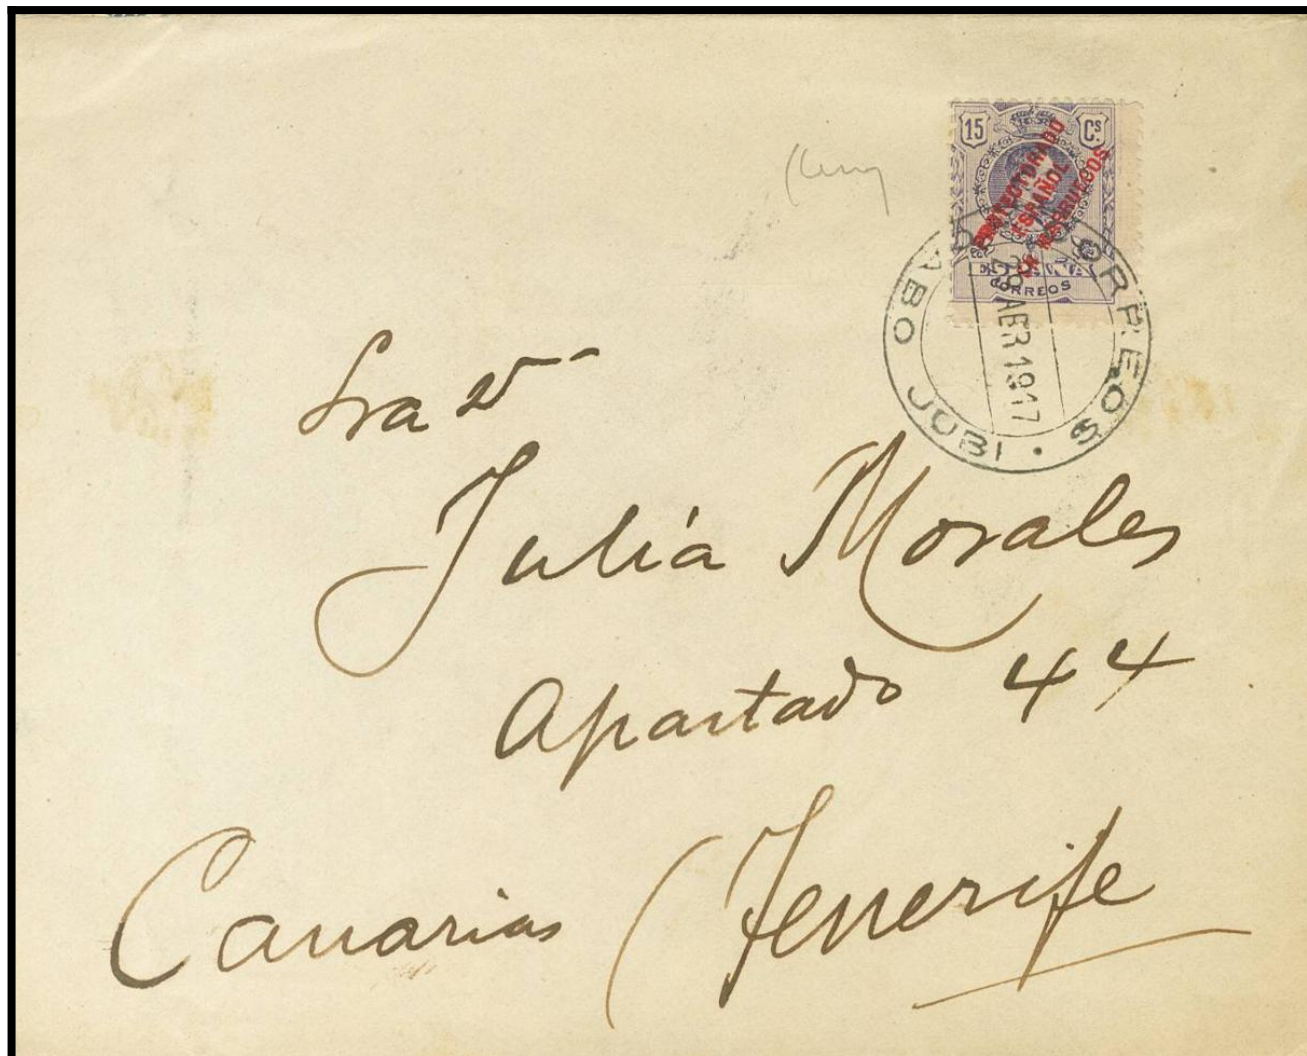 15 Cs
PROTECTORADO
ESPAÑOL
EN MARRUECOS
ESPAÑA
CORREOS
CORREOS
28 ABR 1917
CABO JUBI
Sra Dª
Juliá Morales
Apartado 44
Canarias (Tenerife